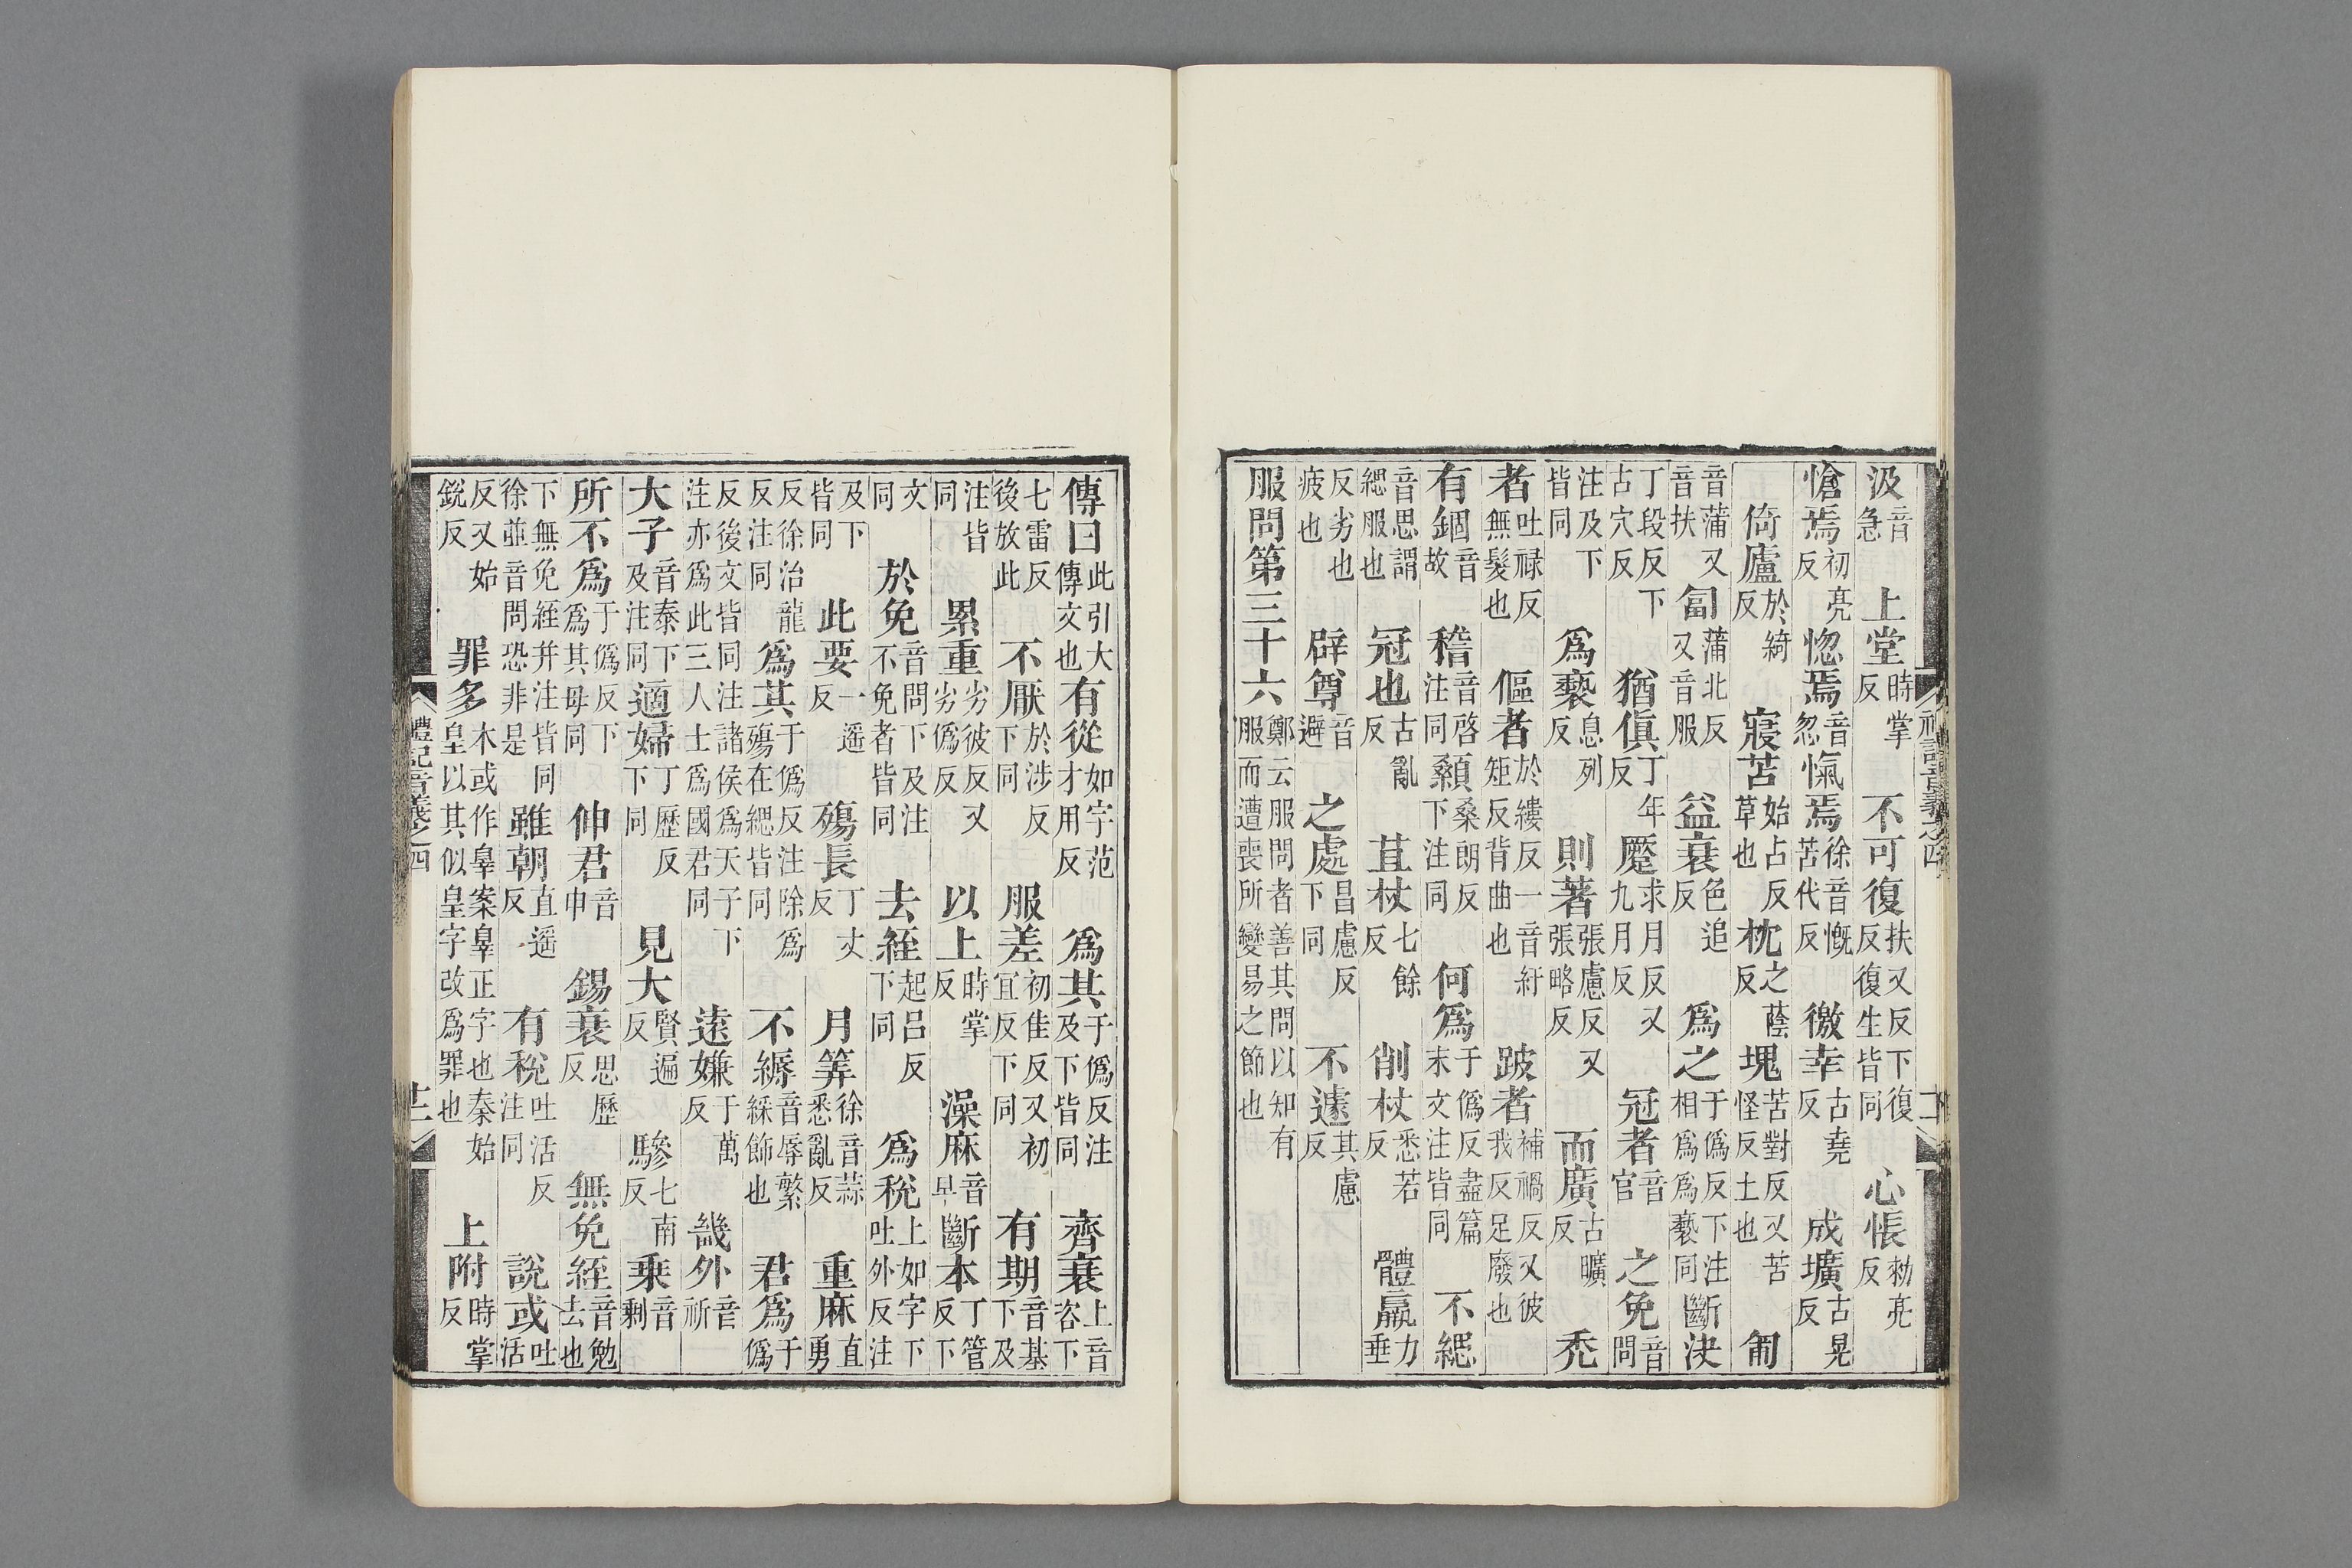 汲音急　上堂時掌反　不可復扶又反下復反復生皆同　心悵勑亮反
愴焉初亮反　惚焉音忽　愾焉徐音慨苦代反　徼幸古堯反　成壙古晃反
倚廬於綺反　寢苫始占反草也　枕之蔭反　塊苦對反又苦怪反土也　匍
音蒲又音扶　匐蒲北反又音服　益衰色追反　爲之于僞反下注相爲爲褻同　斷決
丁段反下古穴反　猶傎丁年反　蹷求月反又九月反　冠者音官　之免音問
注及下皆同　爲褻息列反　則著張慮反又張略反　而廣古曠反　禿
者吐禄反無髮也　傴者於縷反一音紆矩反背曲也　跛者補禍反又彼我反足廢也
有錮音故　稽音啓注同　顙桑朗反下注同　何爲于僞反盡篇末文注皆同　不緦
音思謂緦服也　冠也古亂反　苴杖七餘反　削杖悉若反　體羸力垂
反劣也疲也　辟尊音避　之處昌慮反下同　不遽其慮反
服問第三十六鄭云服問者善其問以知有服而遭喪所變易之節也
傳曰此引大傳文也　有從如字范才用反　爲其于僞反注及下皆同　齊衰上音咨下
七雷反後放此　不厭於涉反下同　服差初佳反又初宜反下同　有期音基下及
注皆同　累重劣彼反又劣僞反　以上時掌反　澡麻音早　斷本丁管反下
文同　於免音問下及注不免者皆同　去絰起呂反下同　爲稅上如字下吐外反注
及下皆同　此要一遥反　殤長丁丈反　月筭徐音蒜悉亂反　重麻直勇
反徐治龍反注同　爲其于僞反注除爲殤在緦皆同　不縟音辱繁綵飾也　君爲于僞
反後文皆同注諸侯爲天子下注亦爲此三人士爲國君同　遠嫌于萬反　畿外音祈
大子音泰下及注同　適婦丁歷反下同　見大賢遍反　驂七南反　乘音剩
所不爲于僞反下爲其母同　伸君音申　錫衰思歷反　無免絰音勉去也
下無免絰并注皆同徐並音問恐非是　雖朝直遥反　有稅吐活反注同　說或吐活
反又始銳反　罪多木或作辠案辠正字也秦始皇以其似皇字改爲罪也　上附時掌反
禮記音義之四